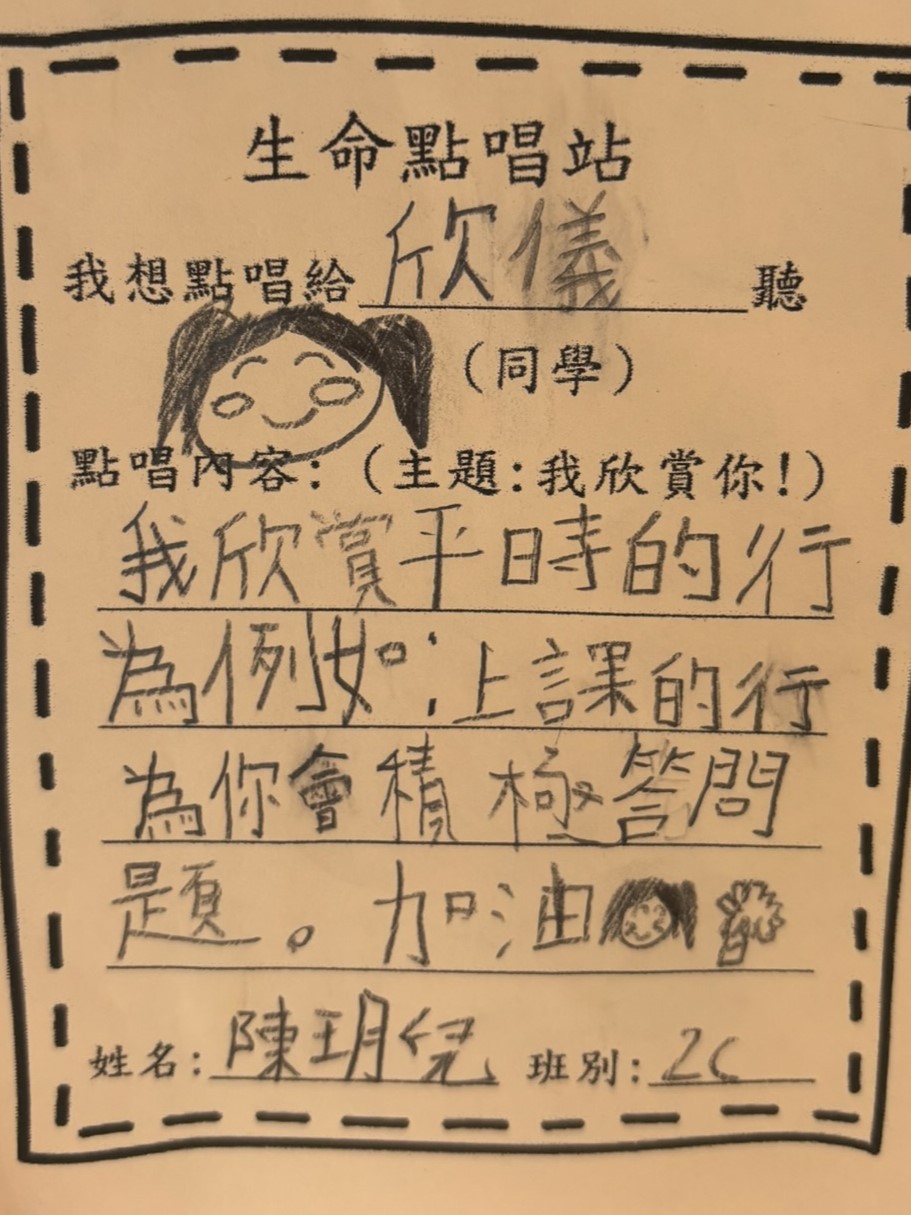 生命點唱站
我想點唱給欣儀聽
(同學)
點唱內容:(主題:我欣賞你!)
我欣賞平時的行
為例如:上課的行
為你會積極答問
題。加油
姓名:陳玥兒 班別:2C